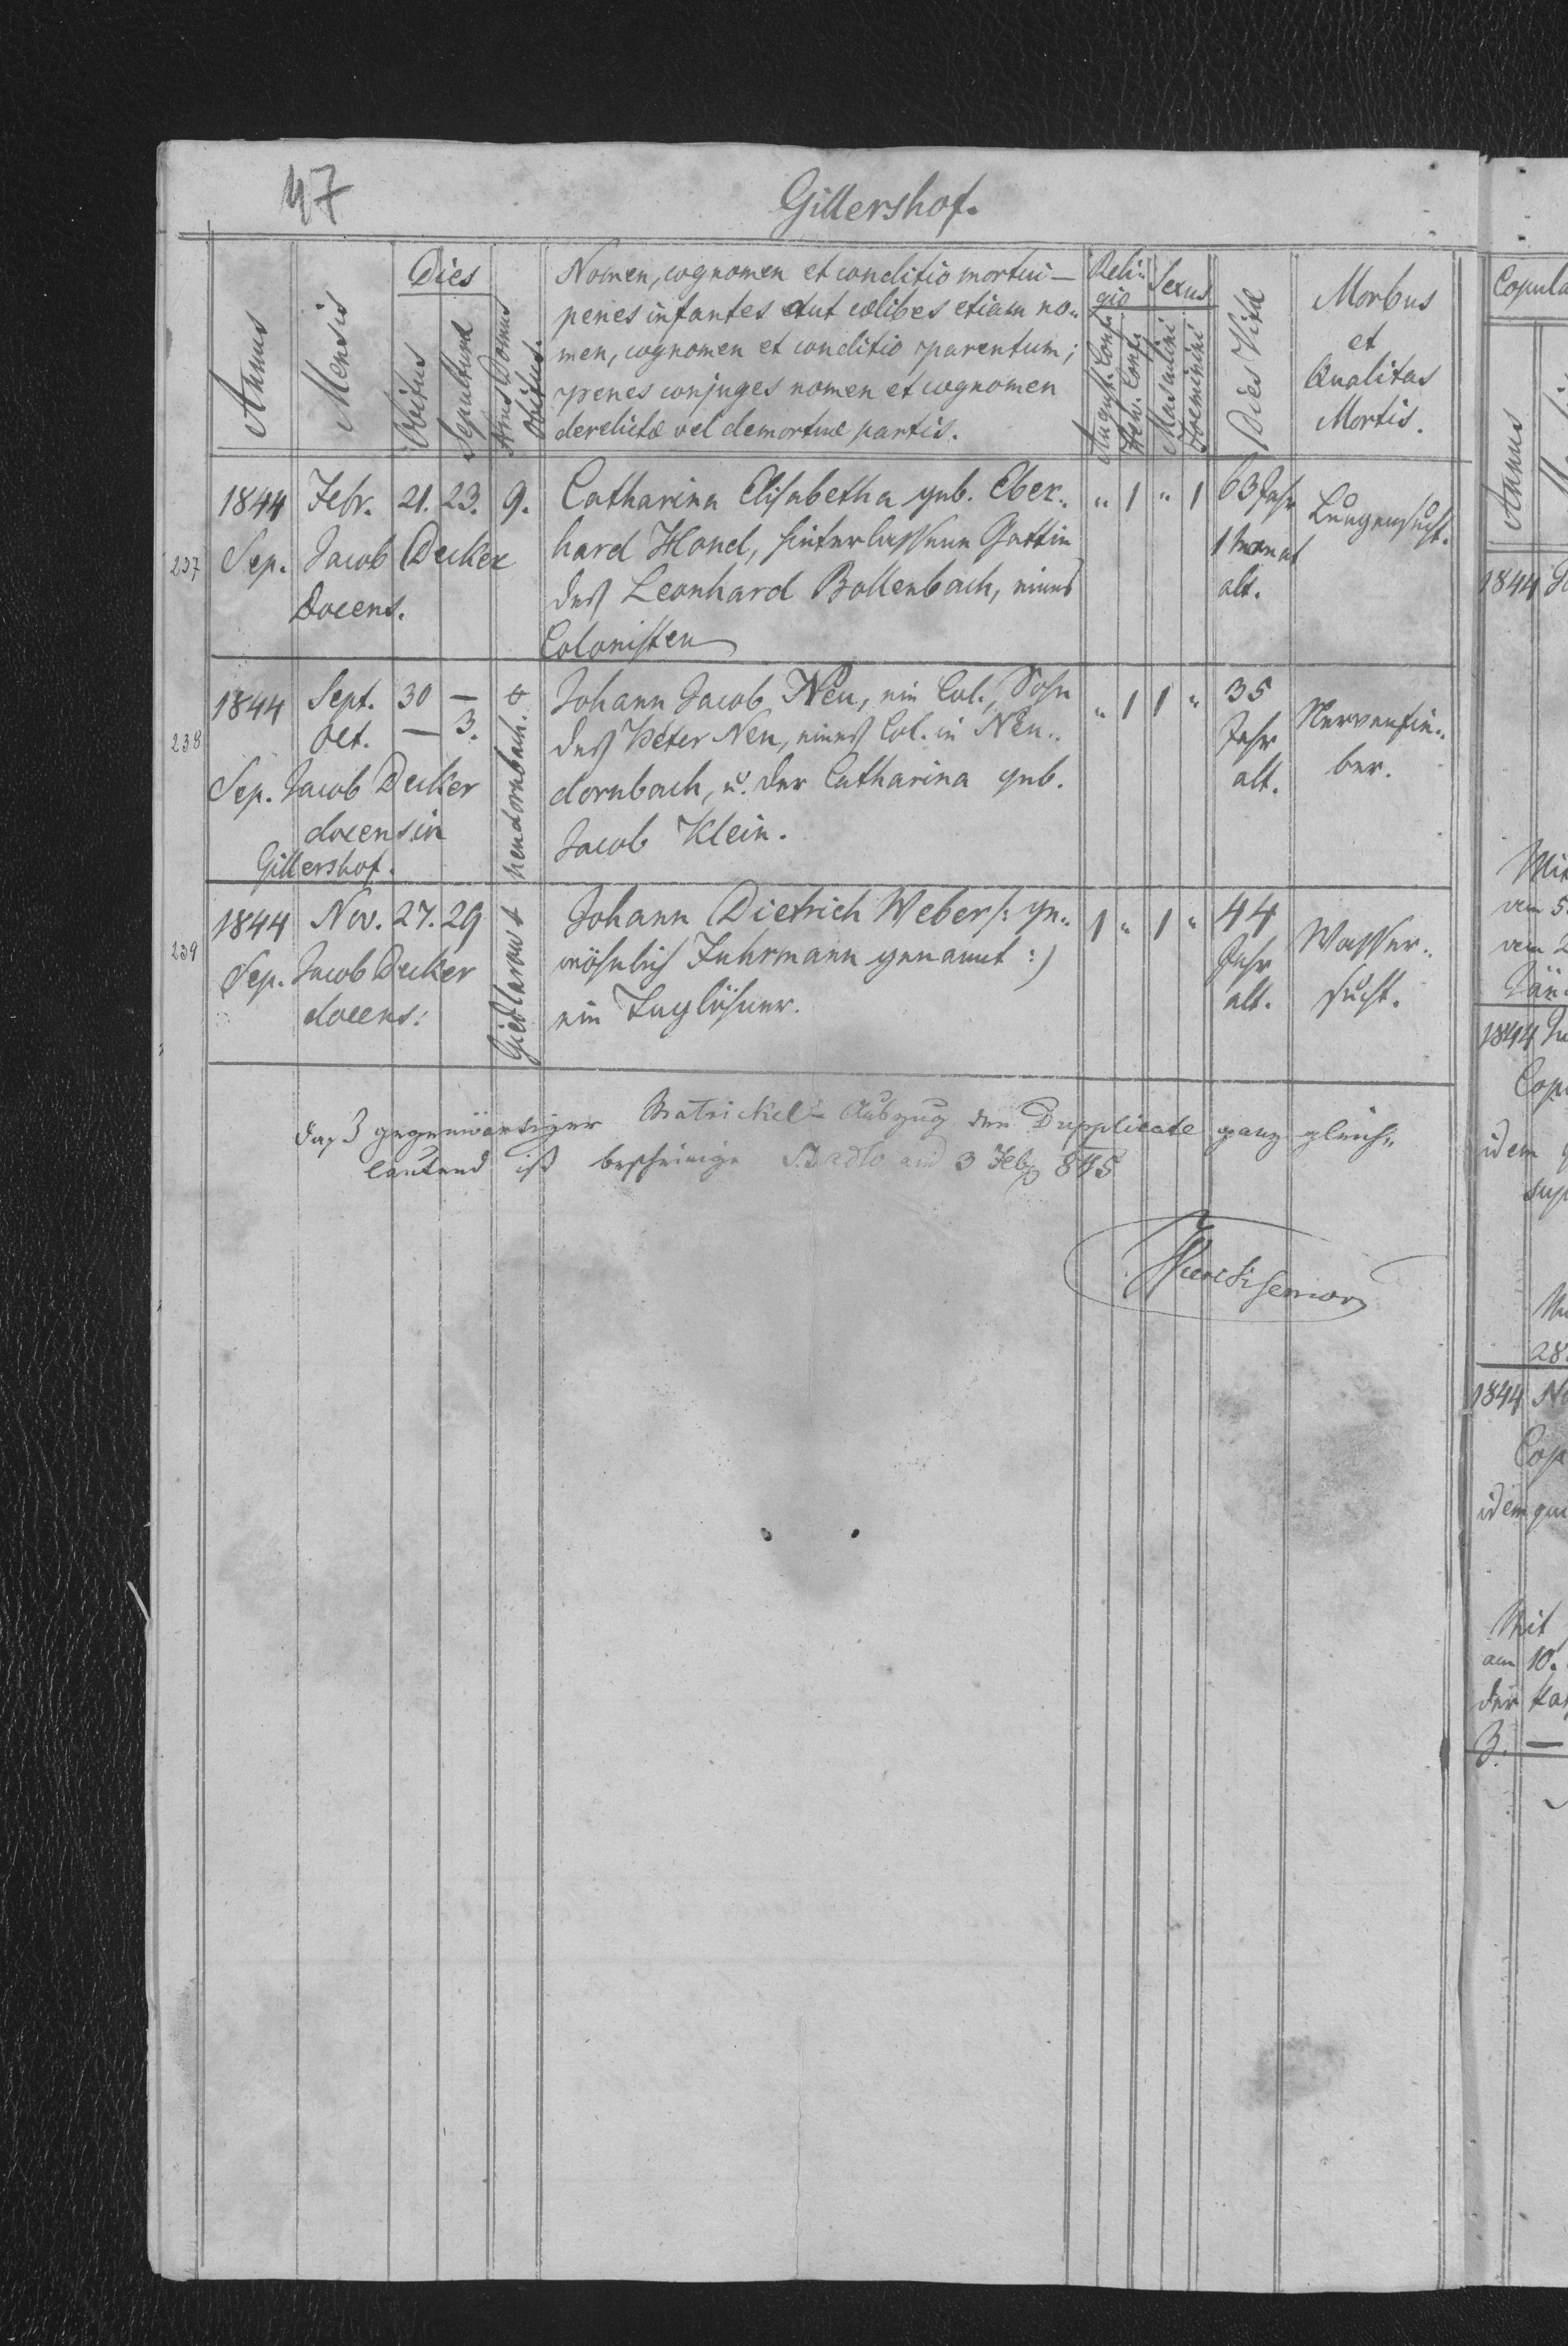 47
Gillershof.
Annus
Mensis
Dies
Obitus
Sepulturae
Nrus Domus Obitus.
Nomen, cognomen et conditio mortui —
penes infantes aut coelibes etiam no„
men, cognomen et conditio parentum;
penes conjuges nomen et cognomen
derelictae vel demortuae partis.
Reli„
gio
August. Conf.
Helv. Conf.
Sexus
Masculini
Foeminini
Dies Vitae
Morbus
et
Qualitas
Mortis.
237
1844 Febr. 21. 23. 9. Catharina Elisabetha geb. Eber„ „ 1 „ 1 63 Jahr Lungensucht.
Sep. Jacob Decker hard Hond, hinterlassene Gattin 1 Monat
docens. des Leonhard Bollenbach, eines alt.
Colonisten
238
1844 Sept. 30 — Johann Jacob Neu, ein Col., Sohn „ 1 1 „ 35 Nervenfie„
Oct. — 3. des Peter Neu, eines Col. in Neu„ Jahr ber.
Sep. Jacob Decker dornbach, u. der Catharina geb. alt.
docens in Jacob Klein.
Gillershof.
neudornbach.
239
1844 Nov. 27. 29 Johann Dietrich Weber /: ge„ 1 „ 1 „ 44 Wasser„
Sep. Jacob Decker wöhnlich Fuhrmann genannt :/ Jahr sucht.
docens: ein Taglöhner. alt.
Giedlarowt
daß gegenwärtiger Matrickel-Auszug den Dupplicate ganz gleich„
lautend ist bescheinige Stadlo am 3 Feb 845
senior
Copula
Annus
1844
1844
Cop
idem
sup
28.
1844 No
Cop
idem qui
Mit
am 10.
der
3. —